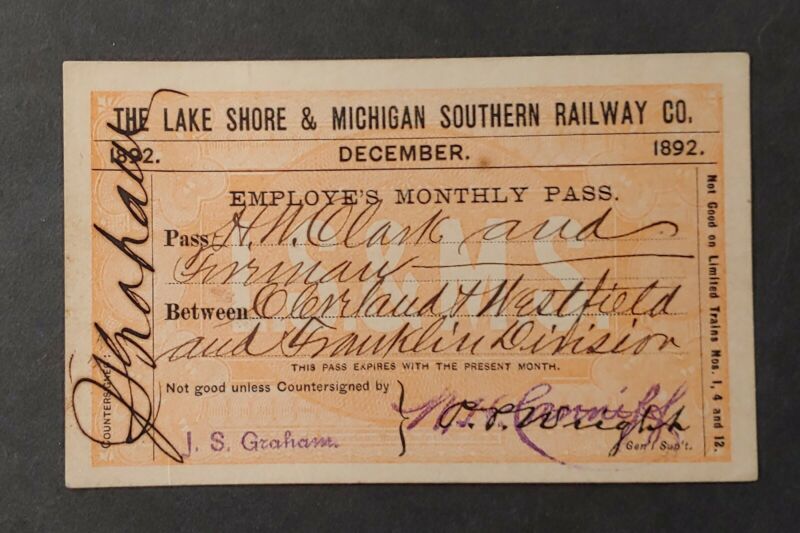 THE LAKE SHORE & MICHIGAN SOUTHERN RAILWAY CO.
1892. DECEMBER. 1892.
EMPLOYE'S MONTHLY PASS.
L.S.& M.S.
Pass H. W. Clark and
Fireman
Between Cleveland & Westfield
and Franklin Division
THIS PASS EXPIRES WITH THE PRESENT MONTH.
Not good unless Countersigned by
J. S. Graham.
P. P. Wright
Gen'l Sup't.
COUNTERSIGNED:
JSGraham
Not Good on Limited Trains Nos. 1, 4 and 12.